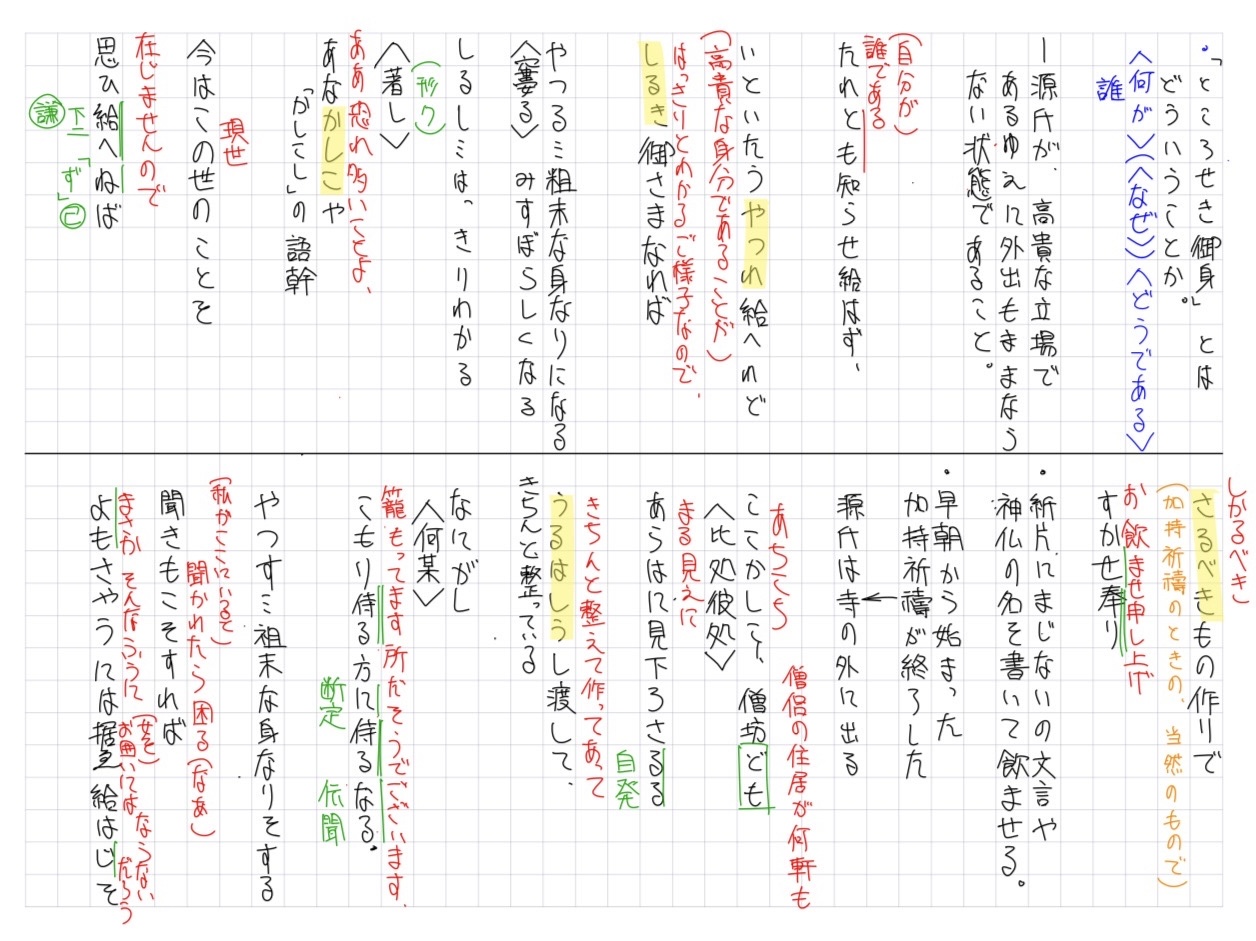 ・「ところせき御身」とは
どういうことか。
〈何が〉〈なぜ〉〈どうである〉
誰
ー源氏が、高貴な立場で
あるゆえに外出もままなら
ない状態であること。
(自分が)
誰である
たれとも知らせ給はず、
いといたうやつれ給へれど
(高貴な身分であることが)
はっきりとわかるご様子なので、
しるき御さまなれば
やつる＝粗末な身なりになる
〈窶る〉みすぼらしくなる
しるし＝はっきりわかる
(形ク)
〈著し〉
ああ恐れ多いことよ、
あなかしこや
「かしこし」の語幹
現世
今はこの世のことを
在じませんので
思ひ給へねば
下二「ず」已
謙
しかるべき)
さるべきもの作りて
(加持祈禱のときの、当然のもので)
お飲ませ申し上げ
すかせ奉り
・紙片にまじないの文言や
神仏の名を書いて飲ませる。
・早朝から始まった
加持祈禱が終了した
源氏は寺の外に出る
あちこち
僧侶の住居が何軒も
ここかしこ、僧坊ども
〈比処彼処〉
まる見えに
あらはに見下ろさるる
自発
きちんと整えて作ってあって
うるはしうし渡して、
きちんと整っている
なにがし
〈何某〉
籠もってます所だそうでございます、
こもり侍る方に侍るなる。
断定 伝聞
やつす＝祖末な身なりをする
(私がここにいるぞ)
聞かれたら困る(なあ)
聞きもこそすれば
まさか そんなふうに(女を)お囲いには ならないだろう
よもさやうには据ゑ給はじを